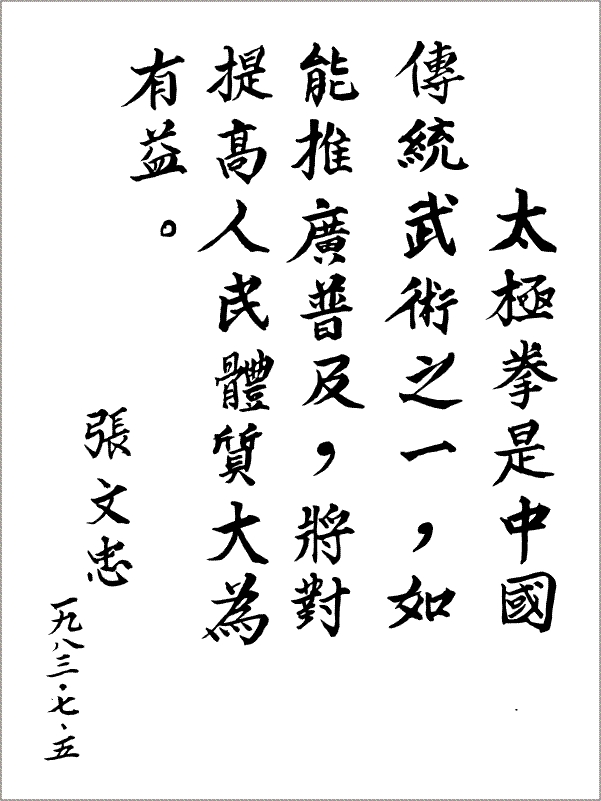 太極拳是中國
傳統武術之一，如
能推廣普及，將對
提高人民體質大為
有益。
張文忠
一九八三·七·五